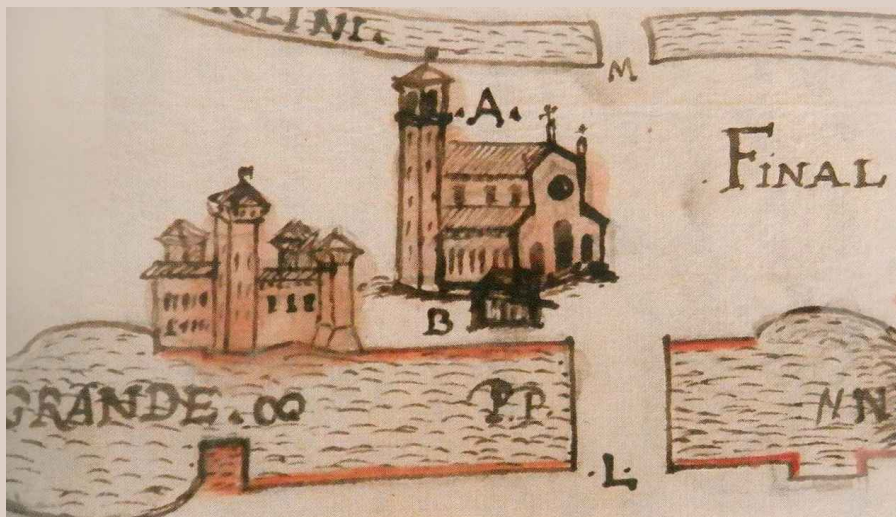 OLINI.
M
.A.
FINAL
B
GRANDE. OQ
P.P.
NN
.L.